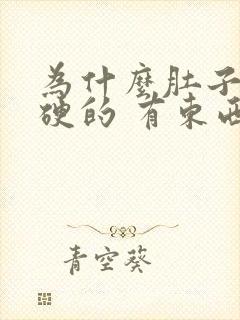 為什麼肚子
硬的 有東西
青空葵